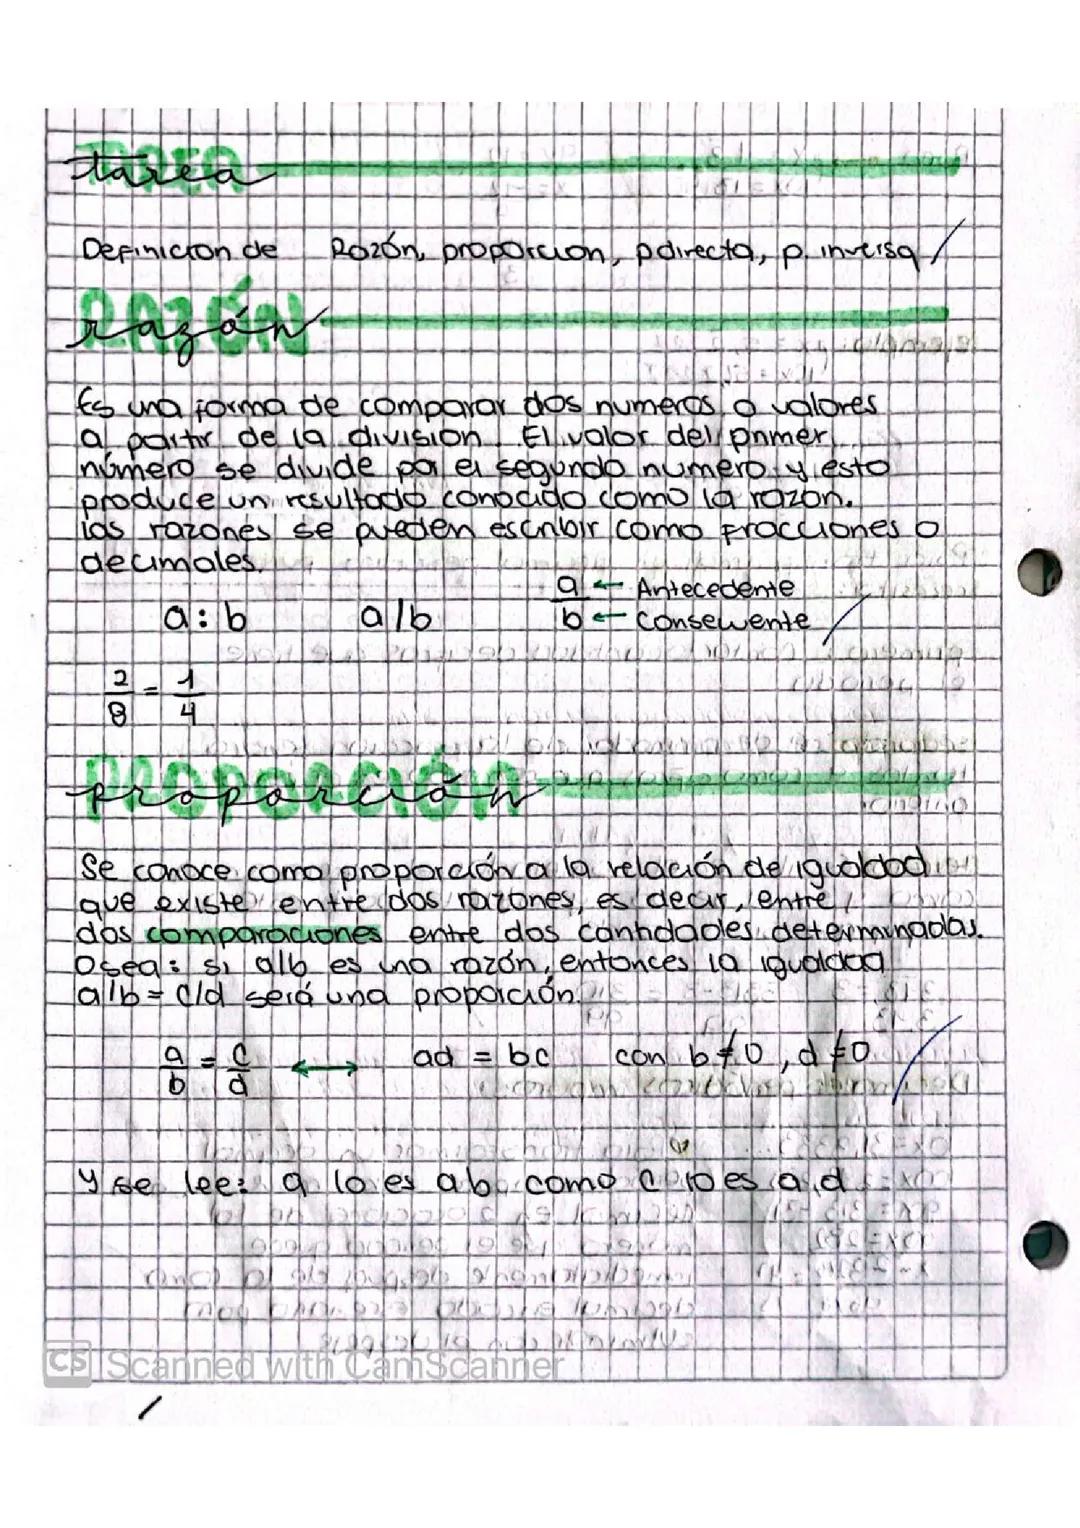 tarea
Definicion de Razón, proporcion, p.directa, p. inversa
razón
Es una forma de comparar dos numeros o valores
a partir de la division. El valor del primer
número se divide por el segundo numero y esto
produce un resultado conocido como la razon.
las razones se pueden escribir como fracciones o
decimales.
a ← Antecedente
a:b a/b b ← Consecuente
2/8 = 1/4
proporción
Se conoce como proporción a la relación de igualdad
que existe entre dos razones, es decir, entre
dos comparaciones entre dos cantidades determinadas.
Osea: si a/b es una razón, entonces la igualdad
a/b = c/d será una proporción.
a/b = c/d ↔ ad = bc con b≠0, d≠0
Y se lee: a lo es a b como c lo es a d
CS Scanned with CamScanner